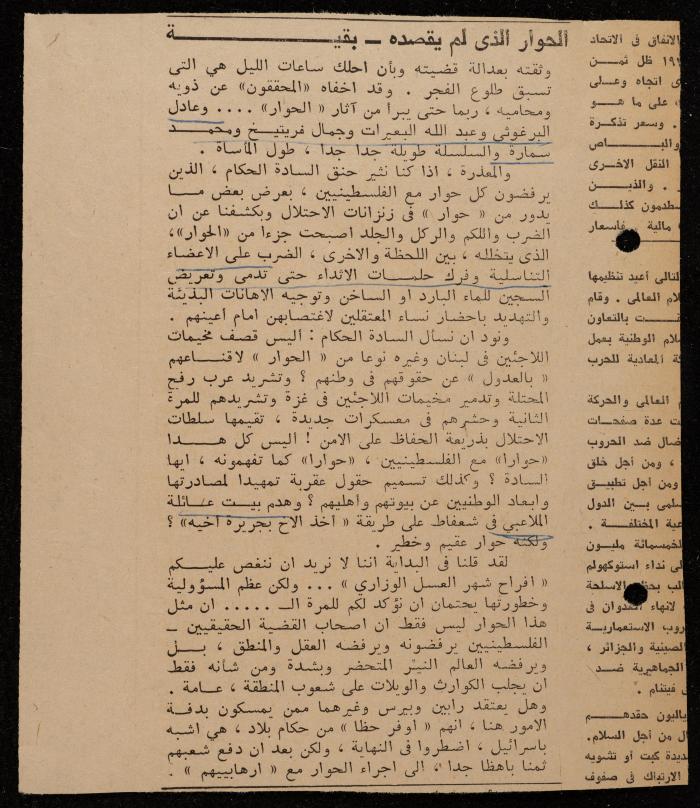 الحوار الذى لم يقصده ـ بقيـــة
وثقته بعدالة قضيته وبأن احلك ساعات الليل هي التى
تسبق طلوع الفجر . وقد اخفاه «المحققون» عن ذويه
ومحاميه ، ربما حتى يبرأ من آثار «الحوار» .... وعادل
البرغوثي وعبد الله البعيرات وجمال فريتيخ ومحمد
سمارة والسلسلة طويلة جدا جدا ، طول المأساة .
والمعذرة ، اذا كنا نثير حنق السادة الحكام ، الذين
يرفضون كل حوار مع الفلسطينيين ، بعرض بعض ما
يدور من « حوار » فى زنزانات الاحتلال وبكشفنا عن ان
الضرب واللكم والركل والجلد اصبحت جزءا من «الحوار»،
الذى يتخلله ، بين اللحظة والاخرى ، الضرب على الاعضاء
التناسلية وفرك حلمات الاثداء حتى تدمى وتعريض
السجين للماء البارد او الساخن وتوجيه الاهانات البذيئة
والتهديد باحضار نساء المعتقلين لاغتصابهن امام اعينهم .
ونود ان نسأل السادة الحكام : اليس قصف مخيمات
اللاجئين فى لبنان وغيره نوعا من « الحوار » لاقناعهم
« بالعدول » عن حقوقهم فى وطنهم ؟ وتشريد عرب رفح
المحتلة وتدمير مخيمات اللاجئين فى غزة وتشريدهم للمرة
الثانية وحشرهم فى معسكرات جديدة ، تقيمها سلطات
الاحتلال بذريعة الحفاظ على الامن ! اليس كل هذا
«حوارا» مع الفلسطينيين ، «حوارا» كما تفهمونه ، ايها
السادة ؟ وكذلك تسميم حقول عقربة تمهيدا لمصادرتها
وابعاد الوطنيين عن بيوتهم واهليهم ؟ وهدم بيت عائلة
الملاعبي فى شعفاط على طريقة « اخذ الاخ بجريرة أخيه» ؟
ولكنه حوار عقيم وخطير .
لقد قلنا فى البداية اننا لا نريد ان ننغص عليكم
« افراح شهر العسل الوزاري » ... ولكن عظم المسؤولية
وخطورتها يحتمان ان نؤكد لكم للمرة الـ ..... ان مثل
هذا الحوار ليس فقط ان اصحاب القضية الحقيقيين ـ
الفلسطينيين يرفضونه ويرفضه العقل والمنطق ، بل
ويرفضه العالم النيّر المتحضر وبشدة ومن شأنه فقط
ان يجلب الكوارث والويلات على شعوب المنطقة ، عامة .
وهل يعتقد رابين وبيرس وغيرهما ممن يمسكون بدفة
الامور هنا ، انهم « اوفر حظا » من حكام بلاد ، هي اشبه
باسرائيل ، اضطروا فى النهاية ، ولكن بعد ان دفع شعبهم
ثمنا باهظا جدا ، الى اجراء الحوار مع « ارهابييهم » .
الانفاق فى الاتحاد
ظل ثمن
اتجاه وعلى
» على ما هو
. وسعر تذكرة
والباص
النقل الاخرى
. والذين
سطدمون كذلك
مالية . فأسعار
التالى أعيد تنظيمها
العالمى . وقام
بالتعاون
الوطنية بعمل
المعادية للحرب
العالمى والحركة
عدة صفحات
ضد الحروب
، ومن أجل خلق
ومن أجل تطبيق
بين الدول
المختلفة .
الخمسمائة مليون
نداء استوكهولم
الاسلحة
لانهاء العدوان فى
الاستعمارية
والجزائر ،
الجماهيرية ضد
فيتنام .
حقدهم
من أجل السلام.
كبت أو تشويه
الارتباك فى صفوف